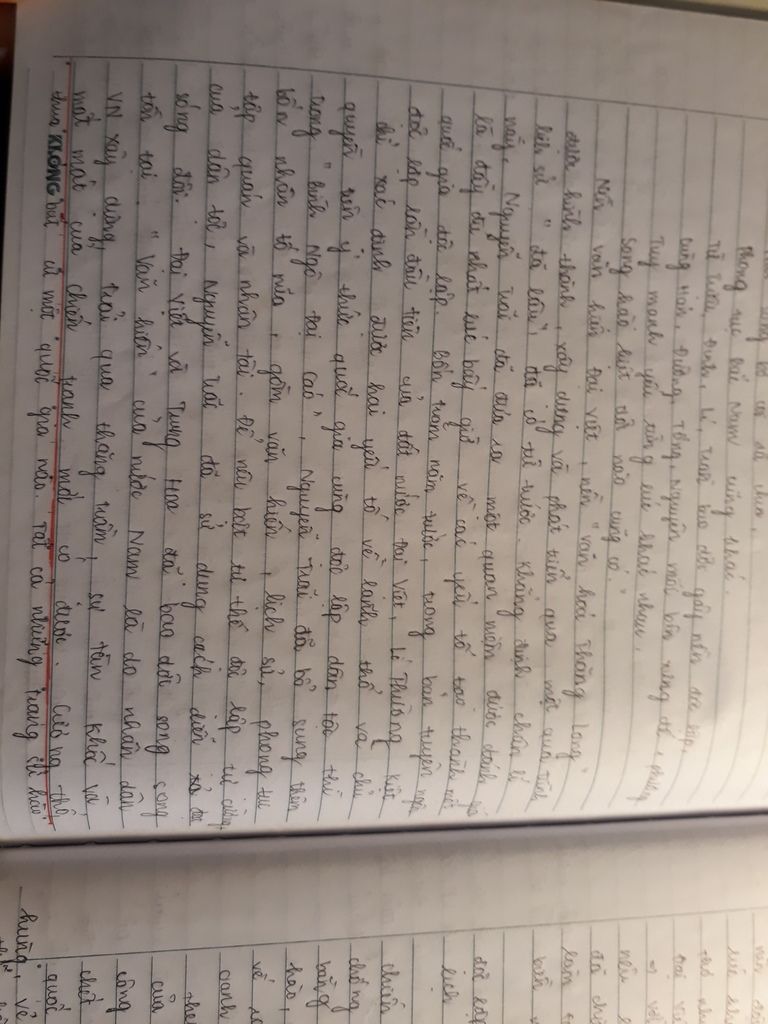 phong tục Bắc Nam cũng khác.
Từ Triệu, Đinh, Lí, Trần bao đời gây nền độc lập,
cùng Hán, Đường, Tống, Nguyên mỗi bên xưng đế 1 phương
Tuy mạnh yếu từng lúc khác nhau,
Song hào kiệt đời nào cũng có."
Nền văn hiến Đại Việt, nền "văn hoá Thăng Long"
được hình thành, xây dựng và phát triển qua một quá trình
lịch sử "đã lâu", đã có từ trước. Khẳng định chân lí
này, Nguyễn Trãi đã đưa ra một quan niệm được đánh giá
là đầy đủ nhất lúc bấy giờ về các yếu tố tạo thành một
quốc gia độc lập. Bốn trăm năm trước, trong bản tuyên ngôn
độc lập lần đầu tiên của đất nước Đại Việt, Lí Thường Kiệt
chỉ xác định được hai yếu tố về lãnh thổ và chủ
quyền trên ý thức quốc gia cùng độc lập dân tộc thì
trong "Bình Ngô đại cáo", Nguyễn Trãi đã bổ sung thêm
bốn nhân tố nữa, gồm văn hiến, lịch sử, phong tục
tập quán và nhân tài. Để nêu bật tư thế độc lập tự cường
của dân tộc, Nguyễn Trãi đã sử dụng cách diễn đạt
sóng đôi. Đại Việt và Trung Hoa đã bao đời song song
tồn tại. "Văn hiến" của nước Nam là do nhân dân
VN xây dựng, trải qua thăng trầm, sự tàn khốc và
mất mát của chiến tranh mới có được. Cương thổ,
thua KHÔNG bất cứ một quốc gia nào. Tất cả những trang sử hào
hùng, vẻ
quốc
chết
công
của
the
oanh
vẻ
hào,
bằng
chống
chiến
lịch
độc lập
biến
làm
đã ch
nêu
Đại Việ